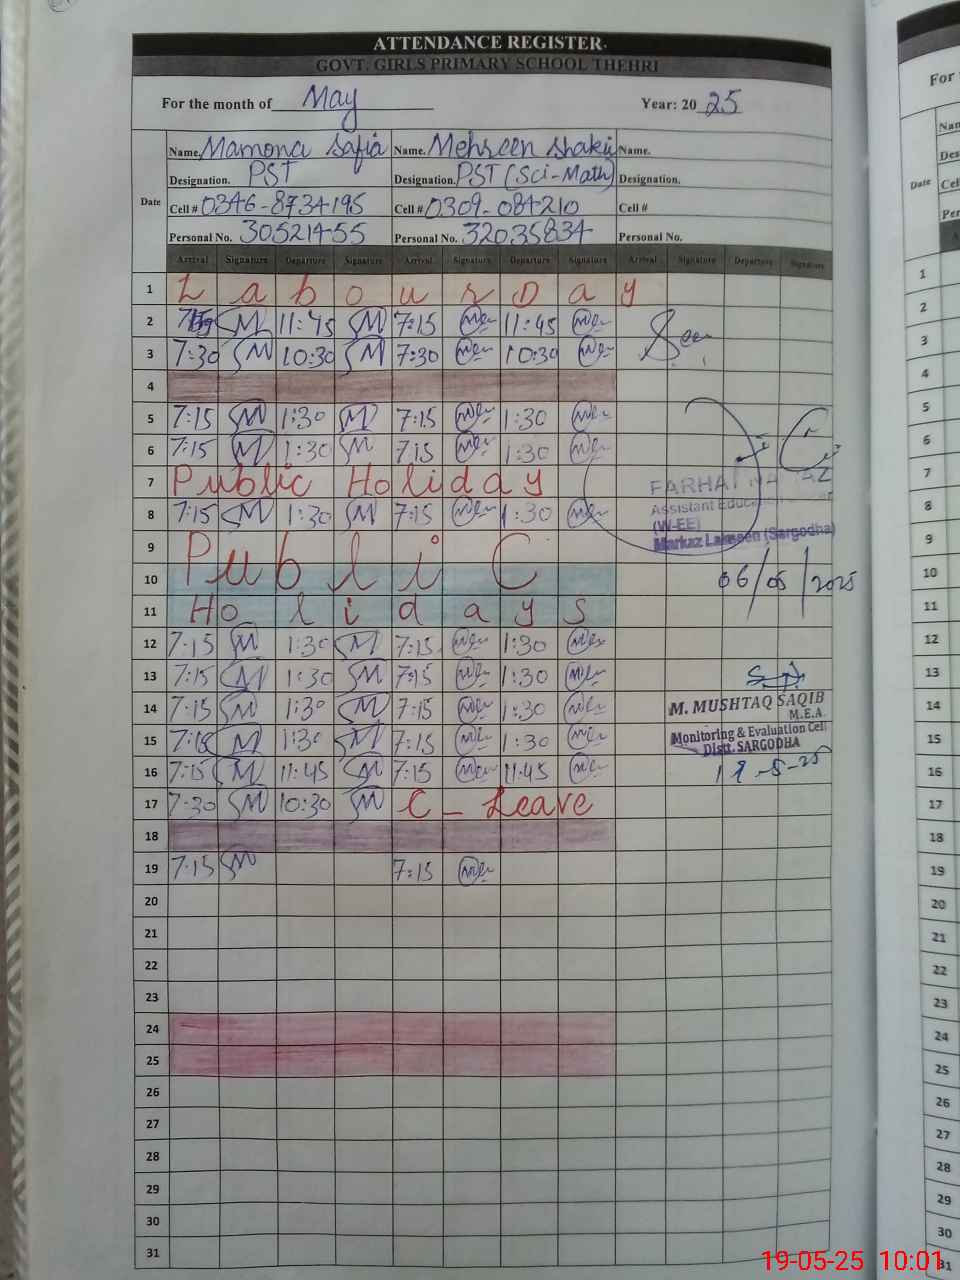 ATTENDANCE REGISTER.
GOVT. GIRLS PRIMARY SCHOOL THEHRI
For the month of May Year: 20 25
Date
Name. Mamona Safia Name. Mehreen Shakir Name.
Designation. PST Designation. PST (Sci-Math) Designation.
Cell # 0346-8734195 Cell # 0309-084210 Cell #
Personal No. 30521455 Personal No. 32035834 Personal No.
Arrival Signature Departure Signature Arrival Signature Departure Signature Arrival Signature Departure Signature
1 Labour Day
2 7:15 M 11:45 M 7:15 11:45
3 7:30 M 10:30 M 7:30 10:30
Seen
4
5 7:15 M 1:30 M 7:15 1:30
6 7:15 M 1:30 M 7:15 1:30
7 Public Holiday
8 7:15 M 1:30 M 7:15 1:30
FARHAT
Assistant Education
(W-EE)
Markaz Lakseen (Sargodha)
06/05/2025
9 Public
10
11 Holidays
12 7:15 M 1:30 M 7:15 1:30
13 7:15 M 1:30 M 7:15 1:30
14 7:15 M 1:30 M 7:15 1:30
15 7:15 M 1:30 M 7:15 1:30
16 7:15 M 11:45 M 7:15 11:45
M. MUSHTAQ SAQIB
M.E.A.
Monitoring & Evaluation Cell
Distt. SARGODHA
19-5-25
17 7:30 M 10:30 M C-Leave
18
19 7:15 M 7:15
20
21
22
23
24
25
26
27
28
29
30
31
For
Date
1
2
3
4
5
6
7
8
9
10
11
12
13
14
15
16
17
18
19
20
21
22
23
24
25
26
27
28
29
30
31
19-05-25 10:01